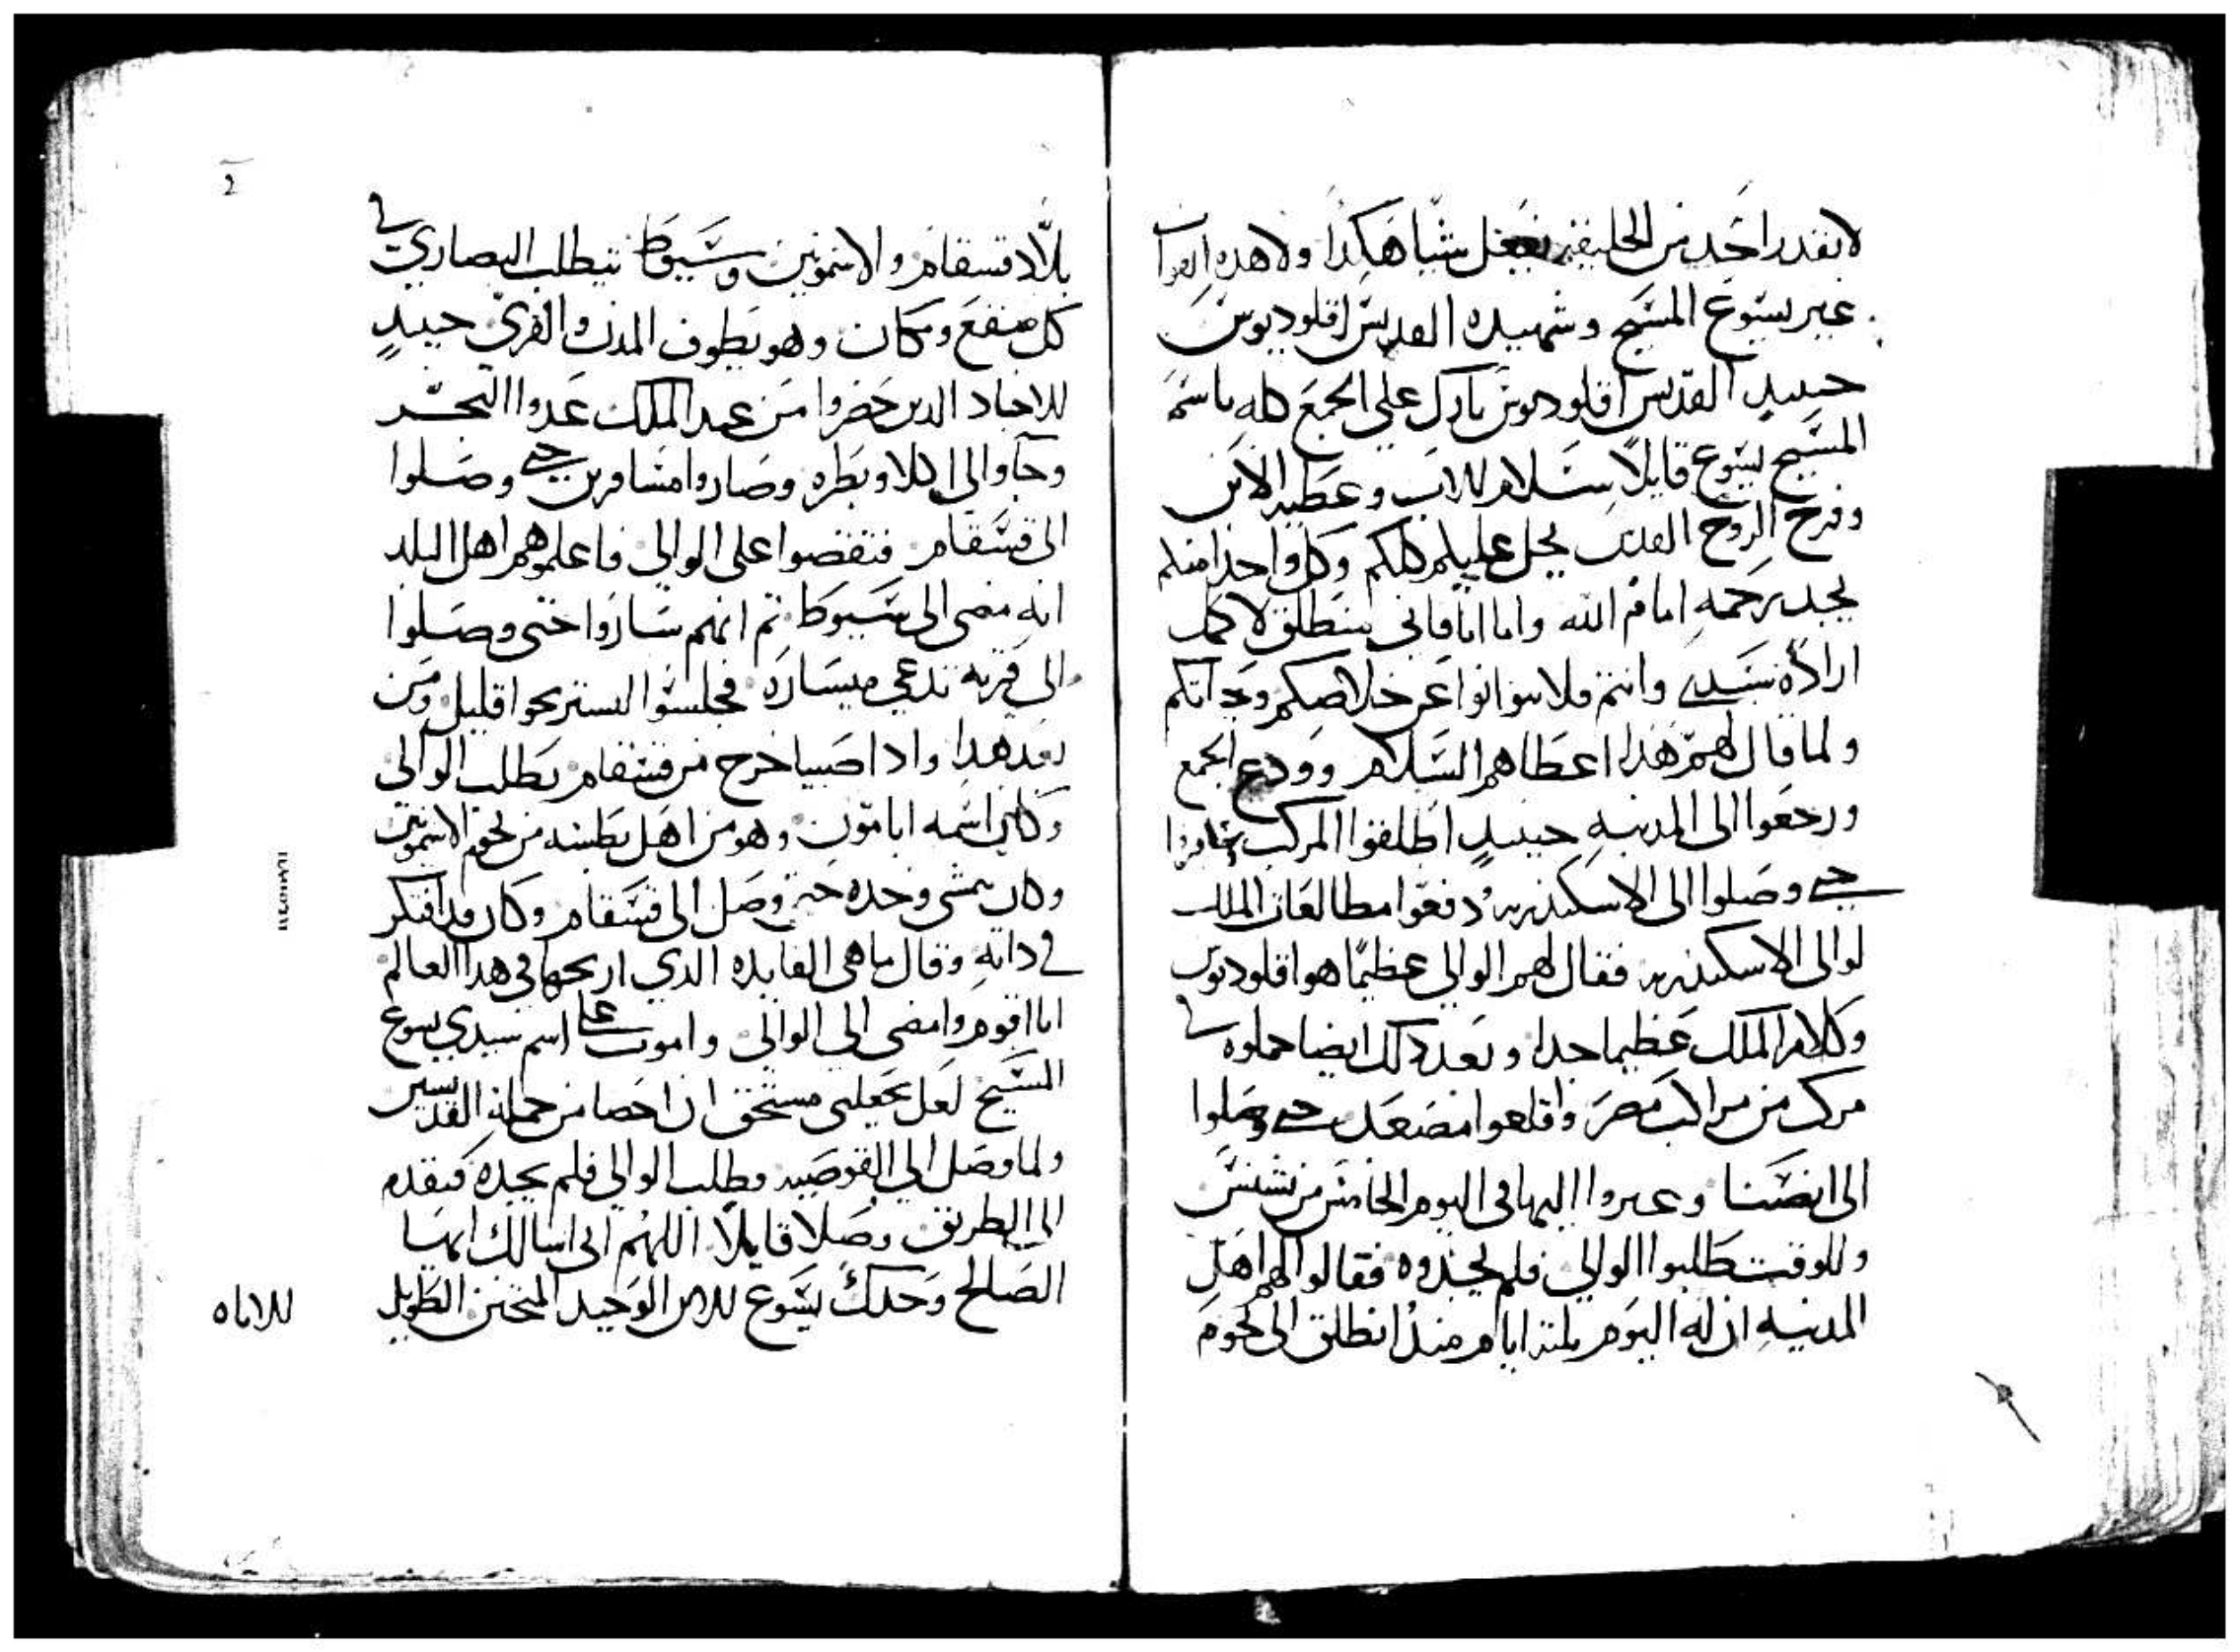 لا يقدر احد من الخليقه يفعل شيا هكدا ولا هده
غير يسوع المسيح وشهيده القديس اقلوديوس
حينيدٍ القديس اقلوديوس بارك على الجمع كله باسم
المسيح يسوع قايلاً سلام الاب وعطيه الابن
وفرح الروح القدس يحل عليكم كلكم وكل واحدا منكم
يجد رحمه امام الله واما انا فاني منطلق لاكمل
اراده سيدي وانتم فلا تتوانوا عن خلاصكم وحياتكم
ولما قال لهم هدا اعطاهم السلام وودع الجمع
ورجعوا الى المدينه حينيدٍ اطلقوا المركب
حتي وصلوا الى الاسكندريه ودفعوا مطالعات الملك
لوالى الاسكندريه فقال لهم الوالي عظيمًا هو اقلوديوس
وكلام الملك عظيما جدا وبعد دلك ايضا حملوه في
مركب من مراكب مصر واقلعوا مصعد حتي وصلوا
الى انصنا وعبروا اليها فى اليوم الخامس من بشنس
وللوقت طلبوا الوالي فلم يجدوه فقالوا لهم اهل
المدينه ان له اليوم تلته ايام مند انطلق الى تخوم
بلاد قسقام والاشمونين وسيوط يتطلب النصاري في
كل صقع ومكان وهو يطوف المدن والقري حينيدٍ
للاجناد الدين حضروا من عند الملك عدوا البحر
وجاوا الى وصاروا مسافرين حتي وصلوا
الى قسقام فتفصوا على الوالي فاعلموهم اهل البلد
انه مضى الى سيوط تم انهم ساروا حتى وصلوا
الى قريه تدعي ميساره فجلسوا ليستريحوا قليل ومن
بعد هدا وادا صبيا خرج من قسقام يطلب الوالي
وكان اسمه ابامون وهو من اهل من تخوم الاشمونين
وكان يمشي وحده حتي وصل الى قسقام وكان قد افتكر
في داته وقال ما هى الفايده الدي اربحها في هدا العالم
انا اقوم وامضى الى الوالي واموت على اسم سيدي يسوع
المسيح لعل يجعلني مستحق ان احصا من جمله القديسين
ولما وصل الى القوصيه وطلب الوالي فلم يجده فتقدم
الى الطريق وصلا قايلاً اللهم اني اسالك ايها
الصالح وحدك يسوع الابن الوحيد المتحنن الطويل
للاناه